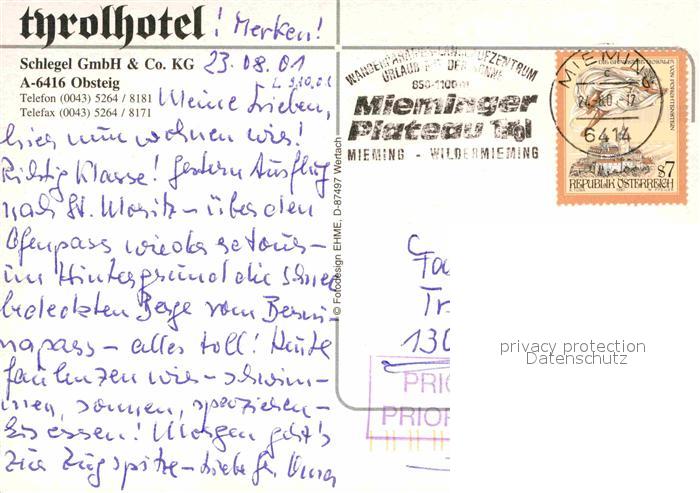 tyrolhotel ! Merken!
Schlegel GmbH & Co. KG 23.08.01
A-6416 Obsteig
Telefon (0043) 5264 / 8181
Telefax (0043) 5264 / 8171
Meine Lieben,
hier nun wohnen wir!
Richtig Klasse! Gestern Ausflug
nach St. Moritz - über den
Ofenpass wieder retour -
im Hintergrund die schnee
bedeckten Berge vom Berni-
napass - alles toll! Heute
faulenzen wir - schwim-
men, sonnen, spazieren -
Eis essen! Morgen geht's
zur Zugspitze - Liebe Gr.
© Fotodesign EHME, D-87497 Wertach
URLAUB
850-1100m
Mieminger
Plateau
MIEMING - WILDERMIEMING
MIEMING
6414
S7
REPUBLIK ÖSTERREICH
Fa
Tr
130
PRIO
PRIOR
privacy protection
Datenschutz